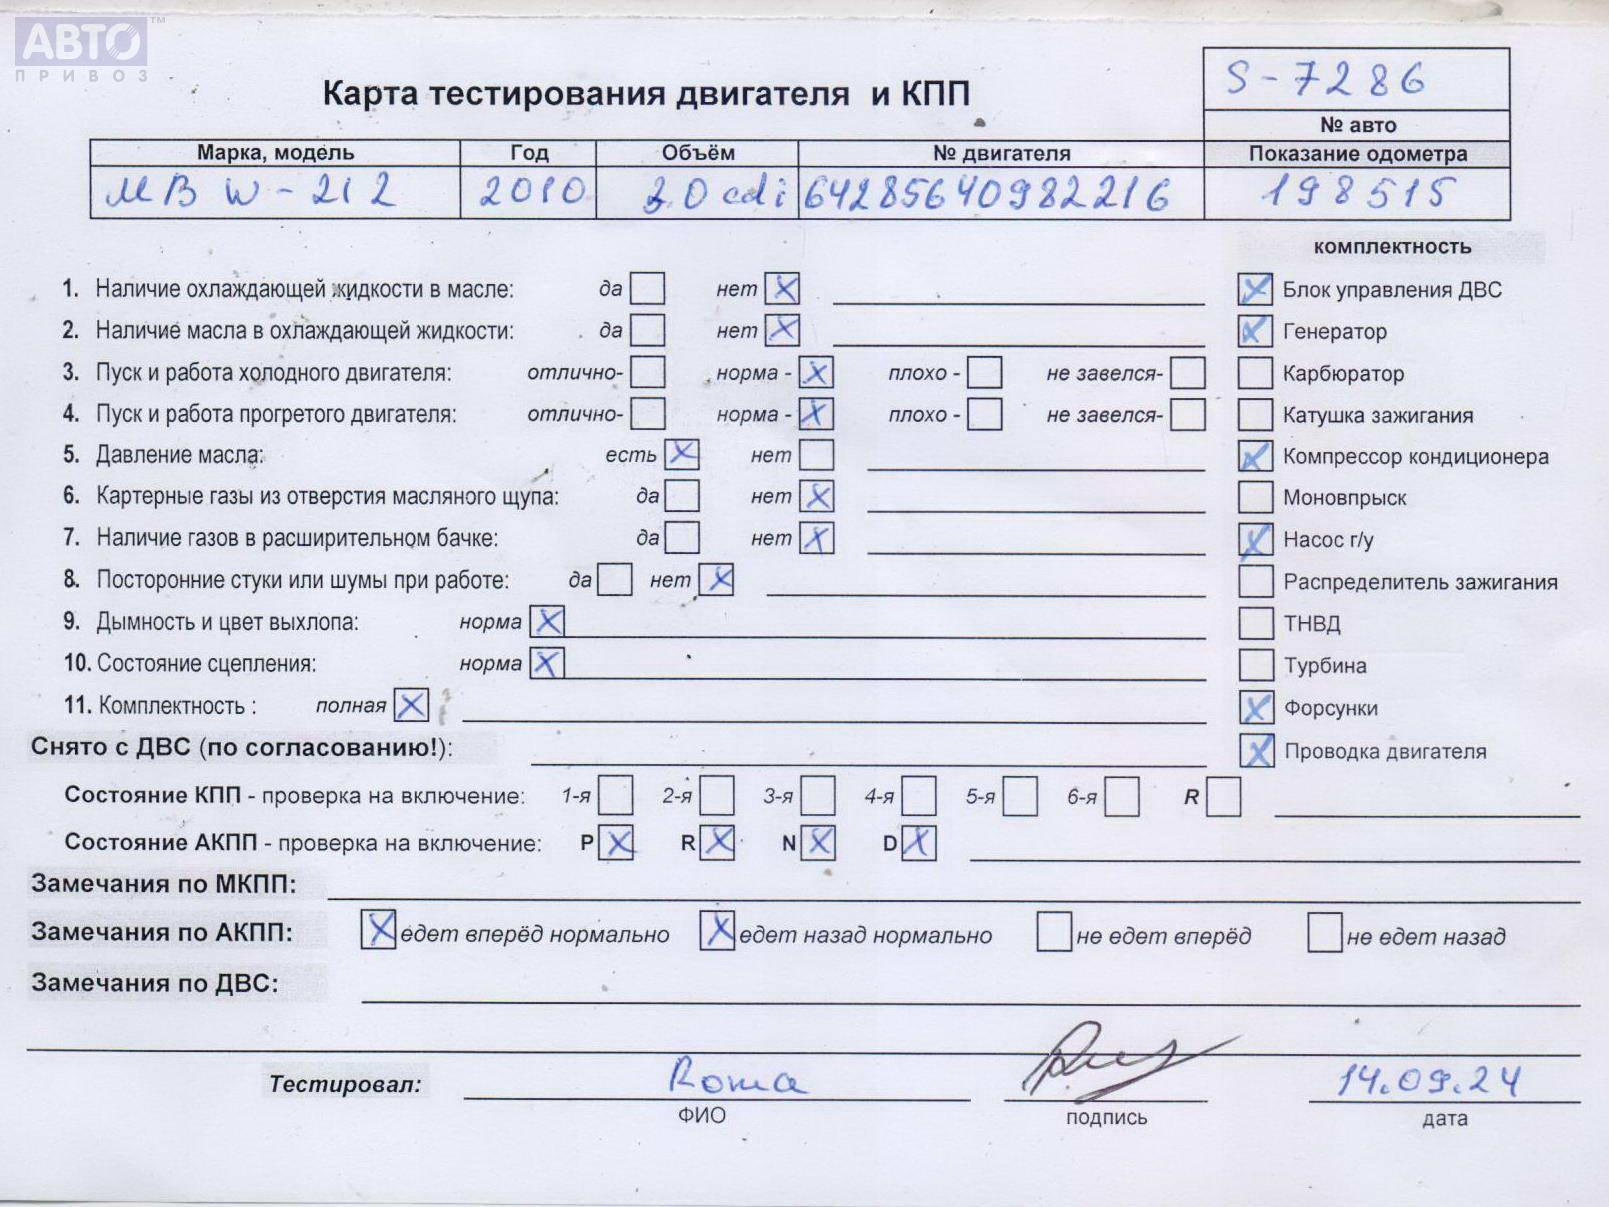 АВТО™
ПРИВОЗ
S-7286
Карта тестирования двигателя и КПП
№ авто
Марка, модель Год Объём № двигателя Показание одометра
МВ W-212 2010 3.0 cdi 64285640982216 198515
комплектность
1. Наличие охлаждающей жидкости в масле: да нет X Блок управления ДВС
2. Наличие масла в охлаждающей жидкости: да нет X Генератор
3. Пуск и работа холодного двигателя: отлично- норма - X плохо - не завелся- Карбюратор
4. Пуск и работа прогретого двигателя: отлично- норма - X плохо - не завелся- Катушка зажигания
5. Давление масла: есть X нет Компрессор кондиционера
6. Картерные газы из отверстия масляного щупа: да нет X Моновпрыск
7. Наличие газов в расширительном бачке: да нет X Насос г/у
8. Посторонние стуки или шумы при работе: да нет X Распределитель зажигания
9. Дымность и цвет выхлопа: норма X ТНВД
10. Состояние сцепления: норма X Турбина
11. Комплектность : полная X Форсунки
Снято с ДВС (по согласованию!): Проводка двигателя
Состояние КПП - проверка на включение: 1-я 2-я 3-я 4-я 5-я 6-я R
Состояние АКПП - проверка на включение: P X R X N X D X
Замечания по МКПП:
Замечания по АКПП: X едет вперёд нормально X едет назад нормально не едет вперёд не едет назад
Замечания по ДВС:
Тестировал: Roma 14.09.24
ФИО подпись дата